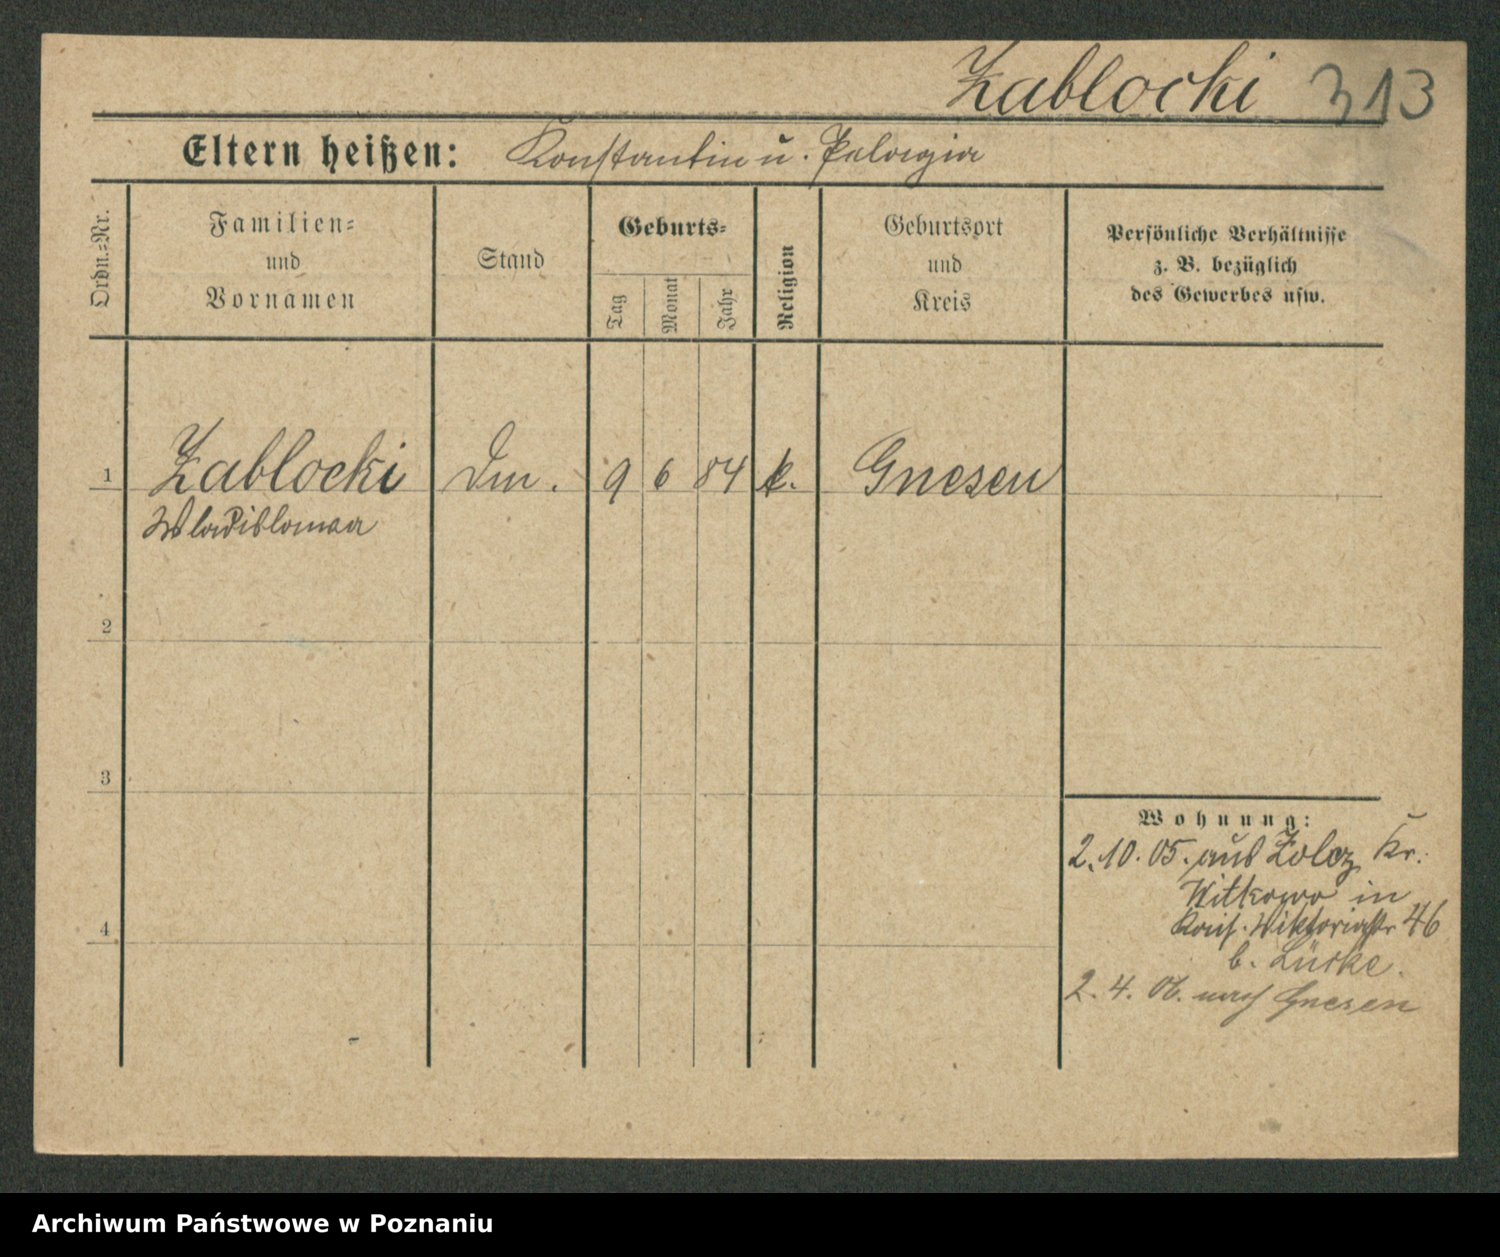 Zablocki 313
Eltern heißen: Konstantin u. Pelagia
Ordn.-Nr.
Familien-
und
Vornamen
Stand
Geburts-
Tag
Monat
Jahr
Religion
Geburtsort
und
Kreis
Persönliche Verhältnisse
z. B. bezüglich
des Gewerbes usw.
1 Zablocki 9 6 84 k. Gnesen
Wladislawa
2
3
4
Wohnung:
2.10.05. aus Kr.
Witkowo in
Wiktoriastr 46
b. Lüske.
2.4.06. nach Gnesen
Archiwum Państwowe w Poznaniu